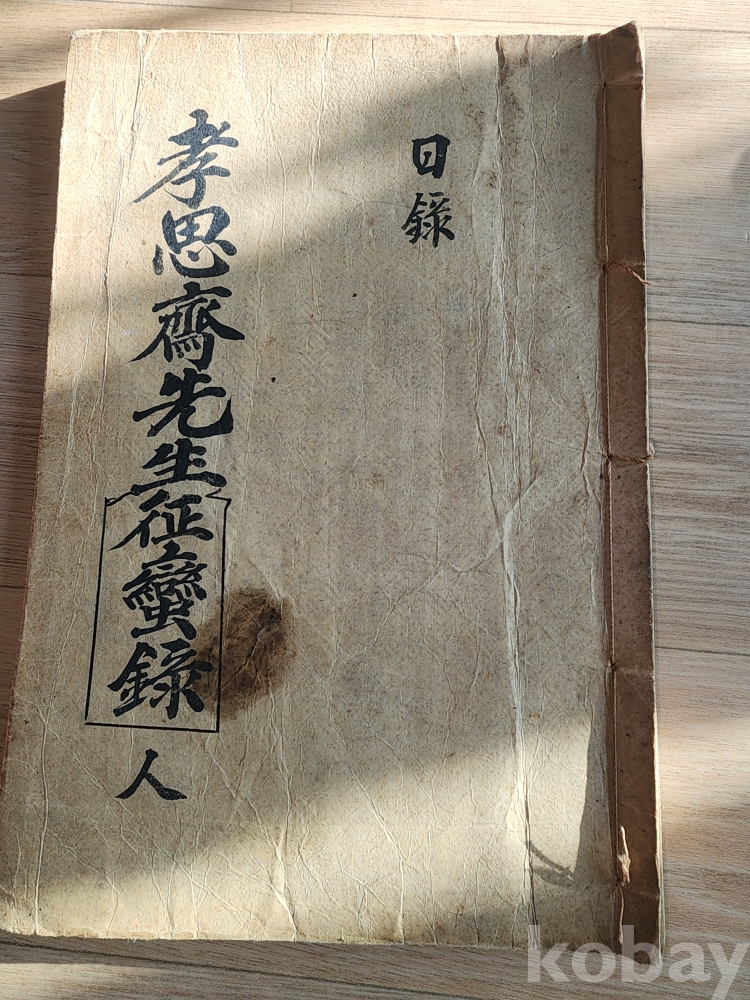 日錄
孝思齋先生征蠻錄 人
kobay